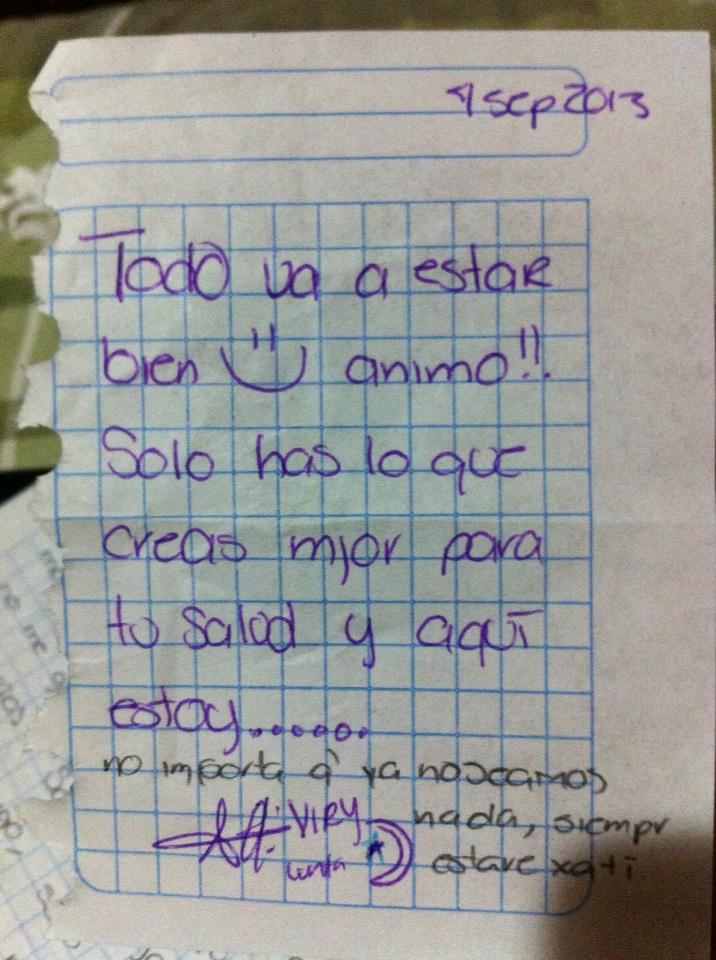 4 sep 2013
Todo va a estar
bien animo!!
Solo has lo que
creas mjor para
tu salud y aquí
estoy......
no importa q' ya no seamos
nada, siempr
estare xa ti.
At: VIRY